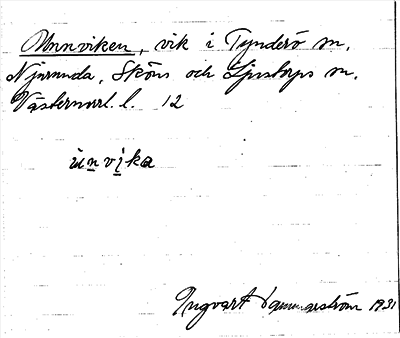 Unnviken, vik i Tynderö sn,
Njurunda, Sköns och Ljustorps sn,
Västernorrl. l. 12
ùnvika
Ingvart 1931